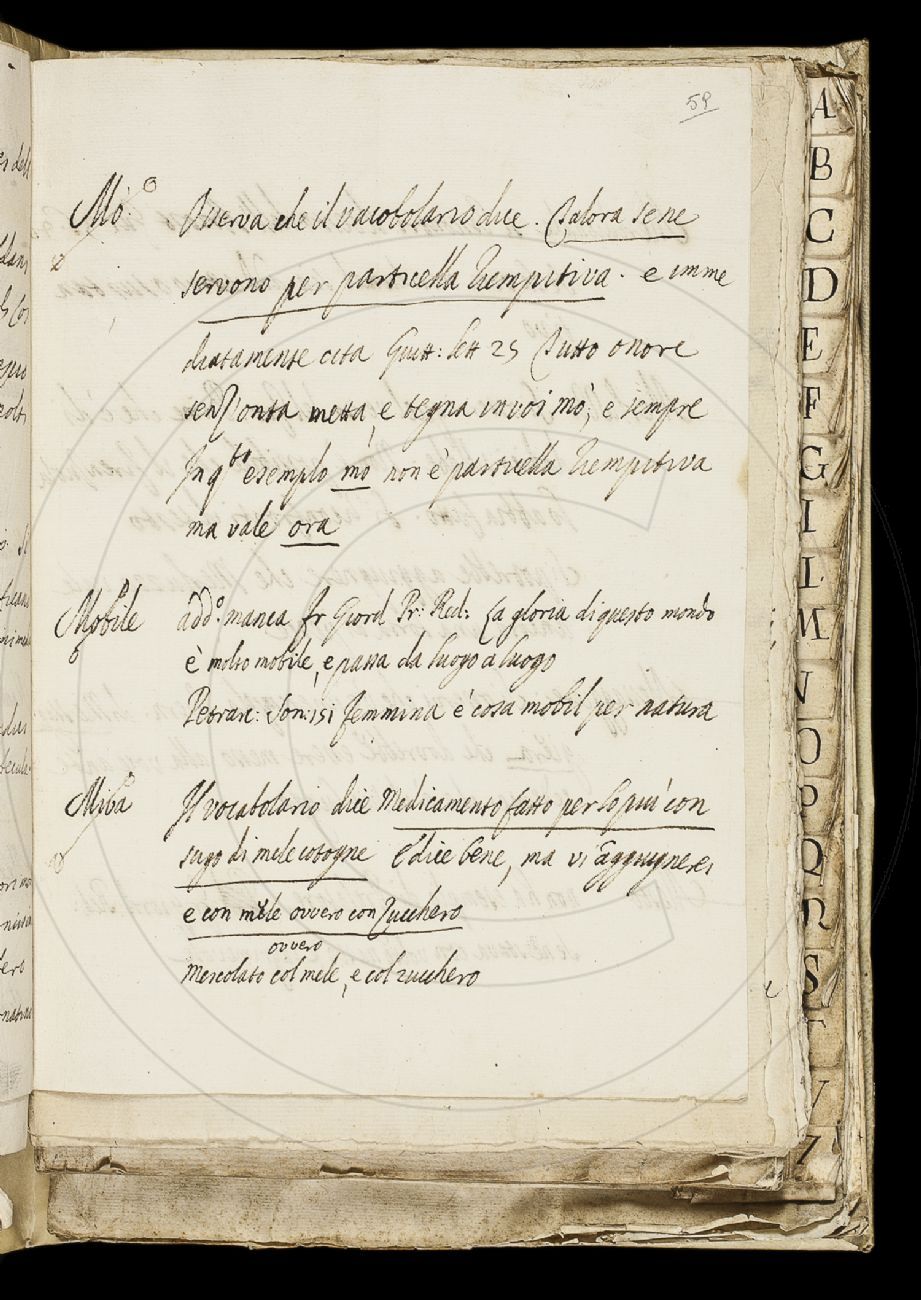 59
Mò. Osserva che il vacobolario dice. Talora se ne
servono per particella riempitiva. e imme
diatamente cita Guitt: lett 25 Tutto onore
senz'onta metta, e tegna in voi mò, e sempre
In q.to esemplo mò non è particella riempitiva
ma vale ora
Mobile add.o manca Fr Giord Pr: Red: La gloria di questo mondo
è molto mobile, e passa da luogo a luogo
Petrarc: Son: 151 Femmina è cosa mobil per natura
Miva Il vocabolario dice Medicamento fatto per lo più con
sugo di mele cotogne E dice bene, ma vi aggiugnerei
e con mele ovvero con Zucchero
ovvero
Mescolato col mele, e col zucchero
A
B
C
D
E
F
G
I
L
M
N
O
P
Q
R
S
T
V
Z